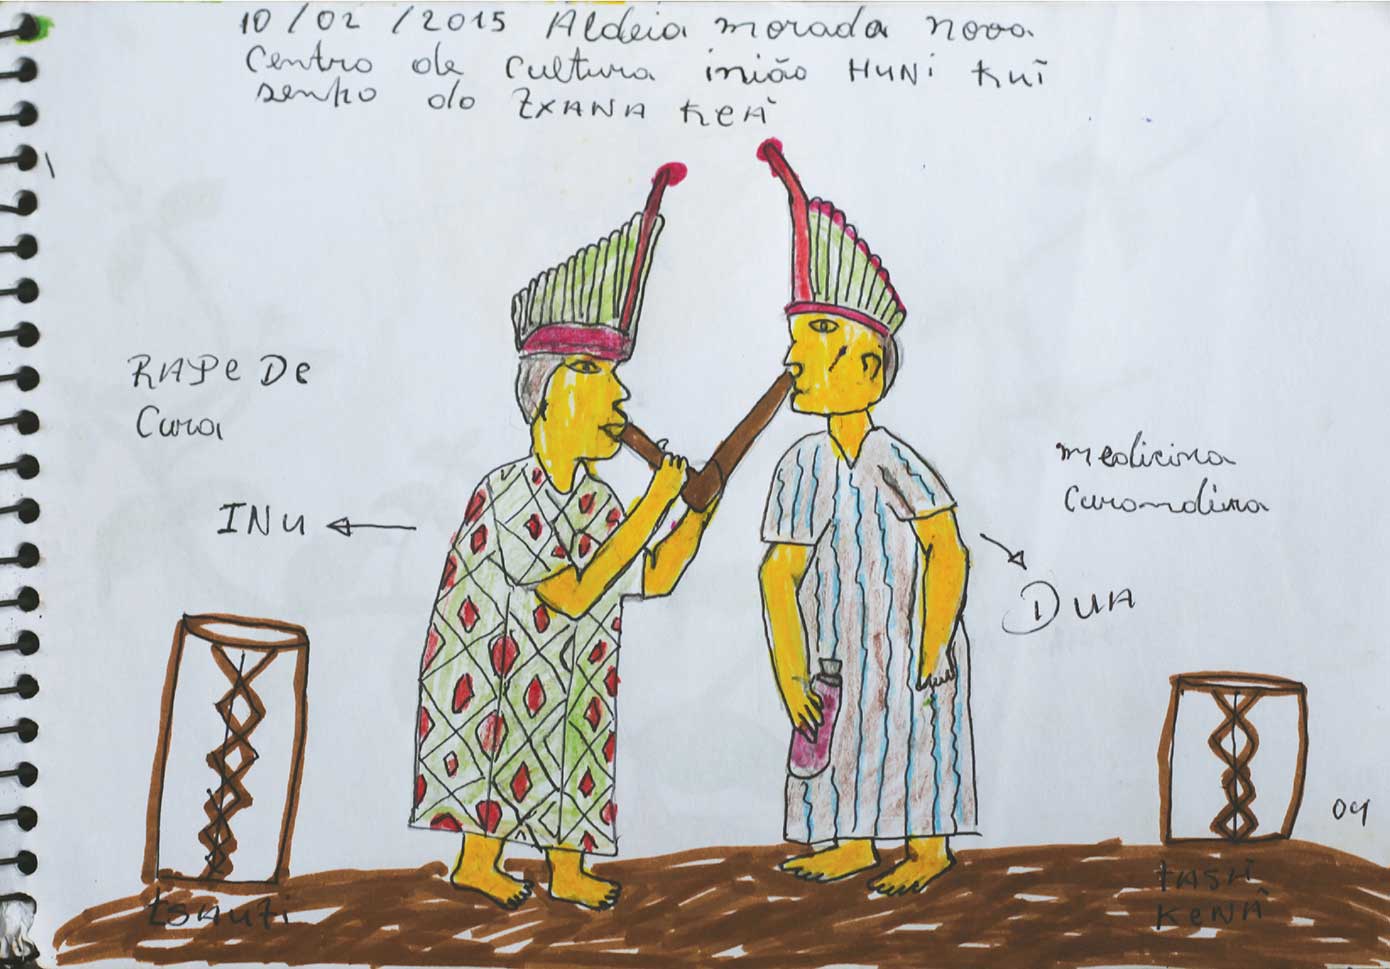 10/02/2015 Aldeia morada nova
Centro de cultura inião HUNi KUĩ
senho do TXANA KEÃ
RAPE De
Cura
INU
medicina
Curandina
DUA
TSAUTi
TASÃ
KeNÃ
04